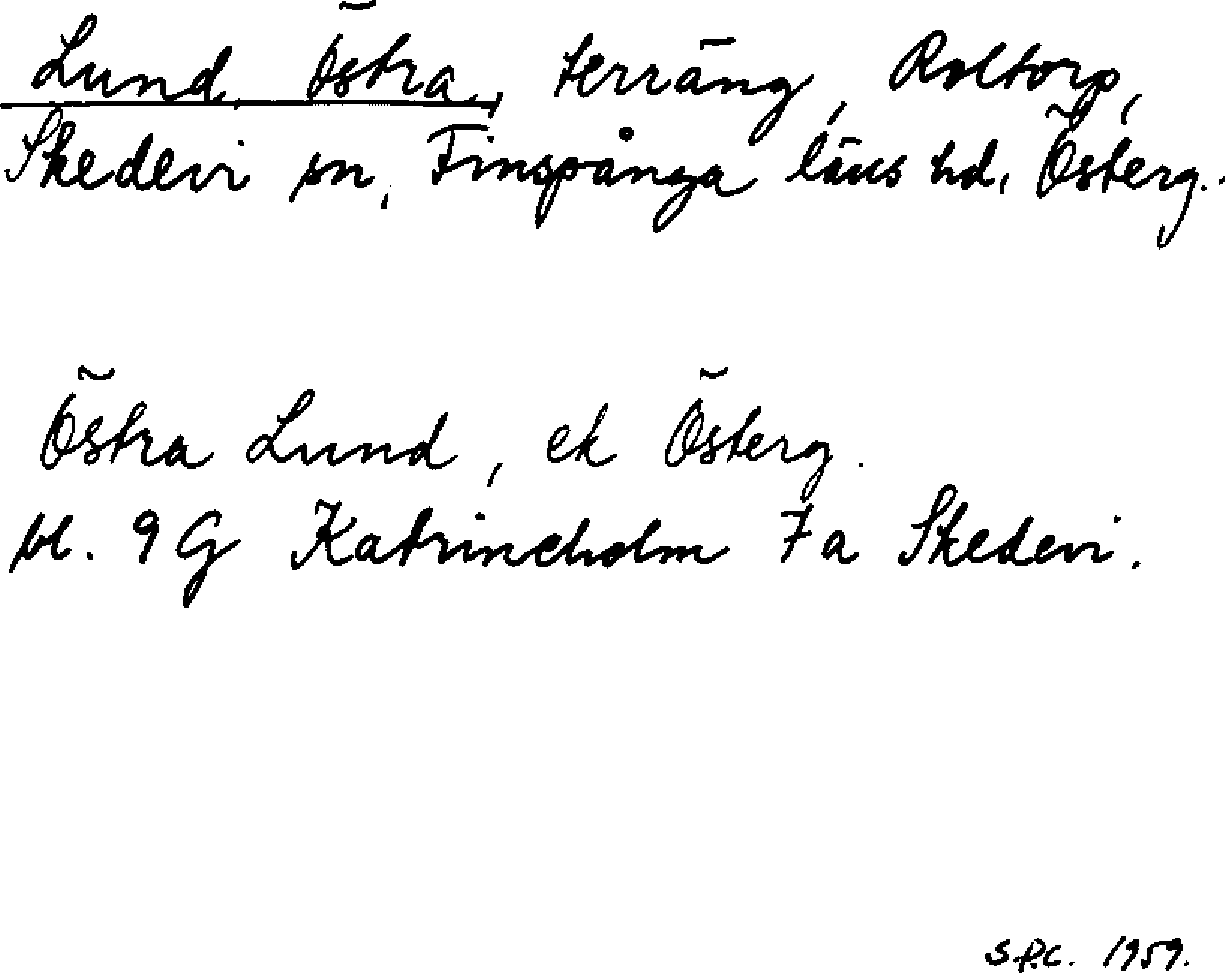 Lund, Östra, terräng, Roltorp,
Skedevi sn, Finspånga läns hd, Österg.
Östra Lund, ek Österg.
bl. 9 G Katrineholm 7 a Skedevi.
S.P.C. 1959.